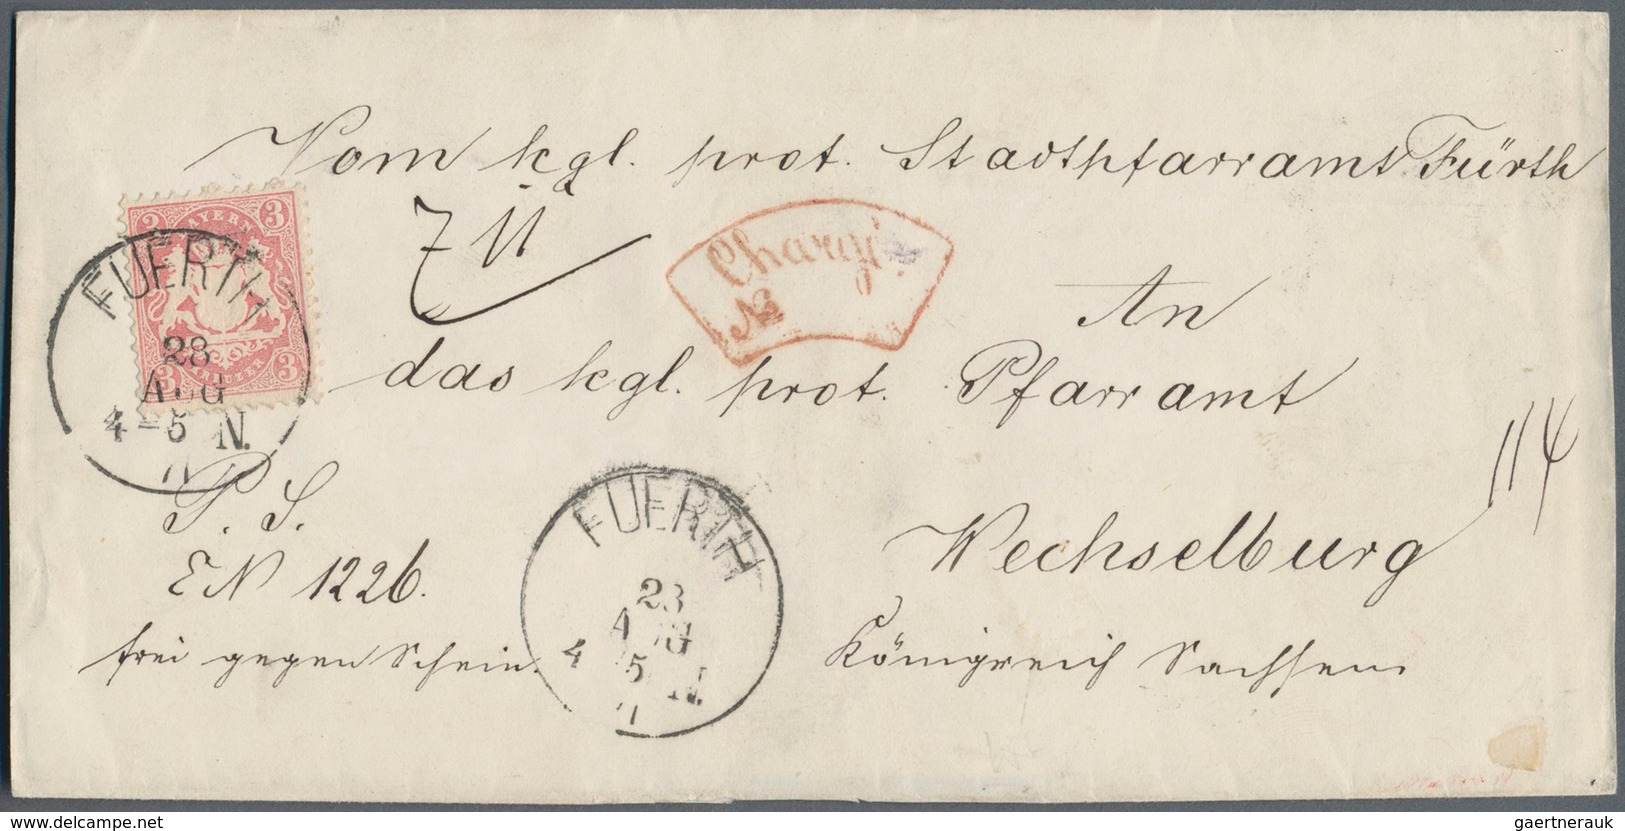 Vom kgl. prot. Stadtpfarramt Fürth
3 3
BAYERN
3 3
KREUZER
FUERTH
28
AUG
4-5 N.
71
711
Chargé
No
An
das kgl. prot. Pfarramt
114
Wechselburg
Königreich Sachsen.
P. S.
EN 1226.
frei gegen Schein.
FUERTH
28
AUG
4 5 N.
71
www.delcampe.net
gaertnerauk